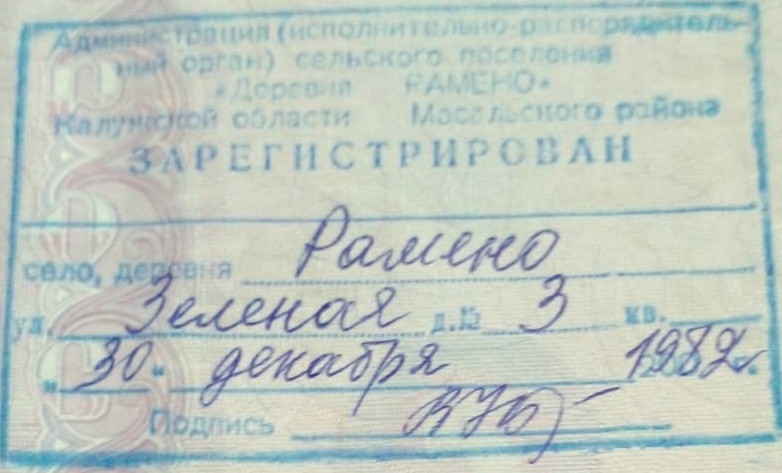 Администрация (исполнительно-распорядитель-
ный орган) сельского поселения
«Деревня РАМЕНО»
Калужской области Мосальского района
ЗАРЕГИСТРИРОВАН
село, деревня Рамено
ул. Зеленая д.№ 3 кв.
" 30 " декабря 1982 г.
Подпись